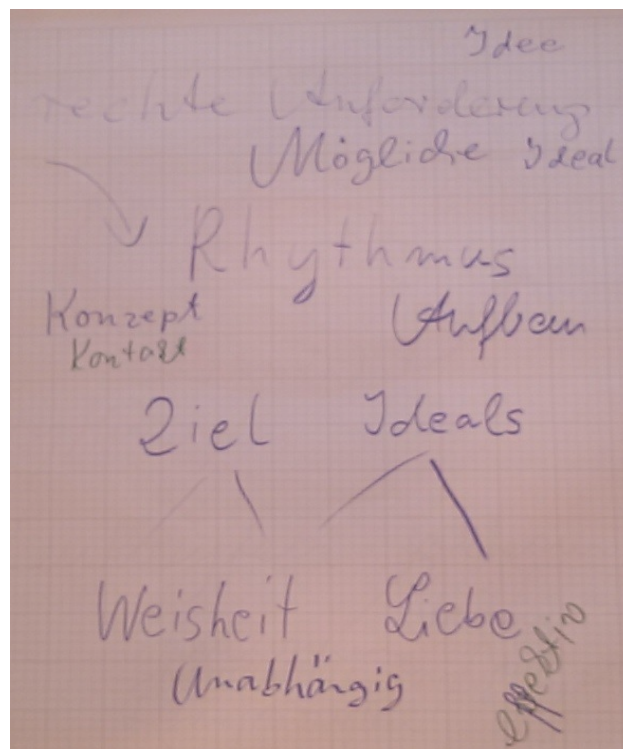 Idee
rechte Anforderung
Mögliche Ideal
Rhythmus
Konzept Aufbau
Kontakt
Ziel Ideals
Weisheit Liebe
Unabhängig effektiv